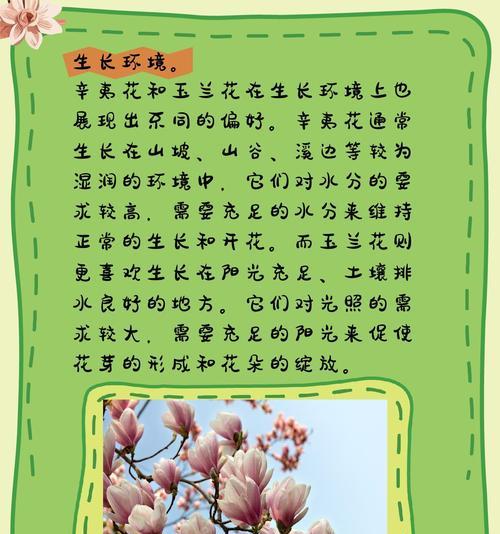 生长环境。
辛夷花和玉兰花在生长环境上也
展现出不同的偏好。辛夷花通常
生长在山坡、山谷、溪边等较为
湿润的环境中，它们对水分的要
求较高，需要充足的水分来维持
正常的生长和开花。而玉兰花则
更喜欢生长在阳光充足、土壤排
水良好的地方。它们对光照的需
求较大，需要充足的阳光来促使
花芽的形成和花朵的绽放。